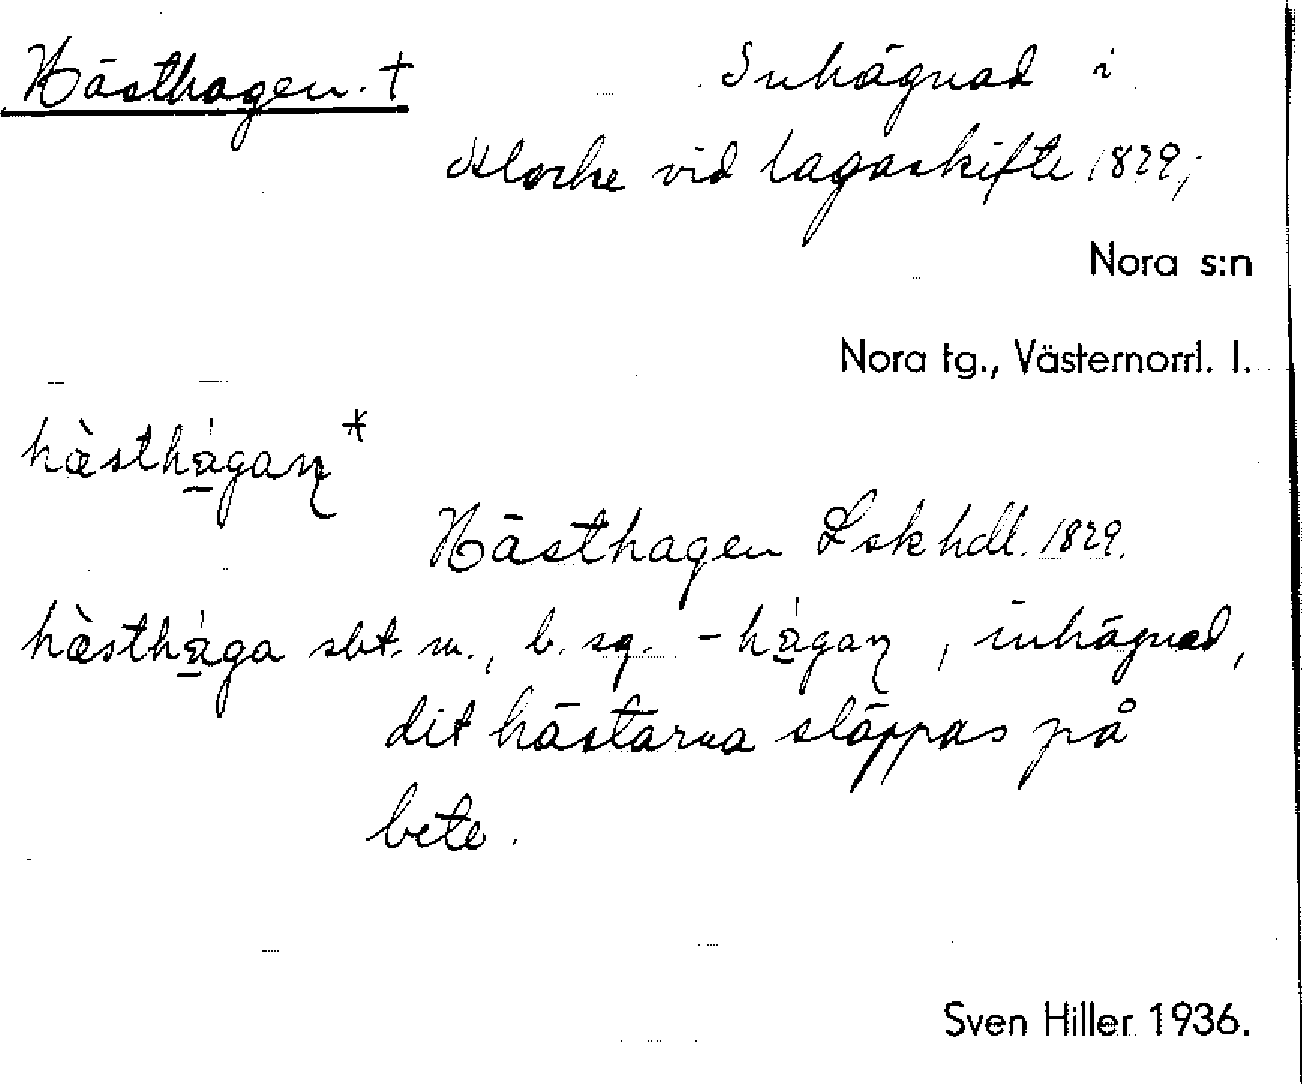 Hästhagen. † Inhägnad i
Klocke vid lagaskifte 1829;
Nora s:n
Nora tg., Västernorrl. l.
hæ̀sthá̱gaɳ*
Hästhagen Lskhdl. 1829.
hæ̀sthá̱ga sbt. m., b. sg. -há̱gaɳ, inhägnad,
dit hästarna släppas på
bete.
Sven Hiller 1936.